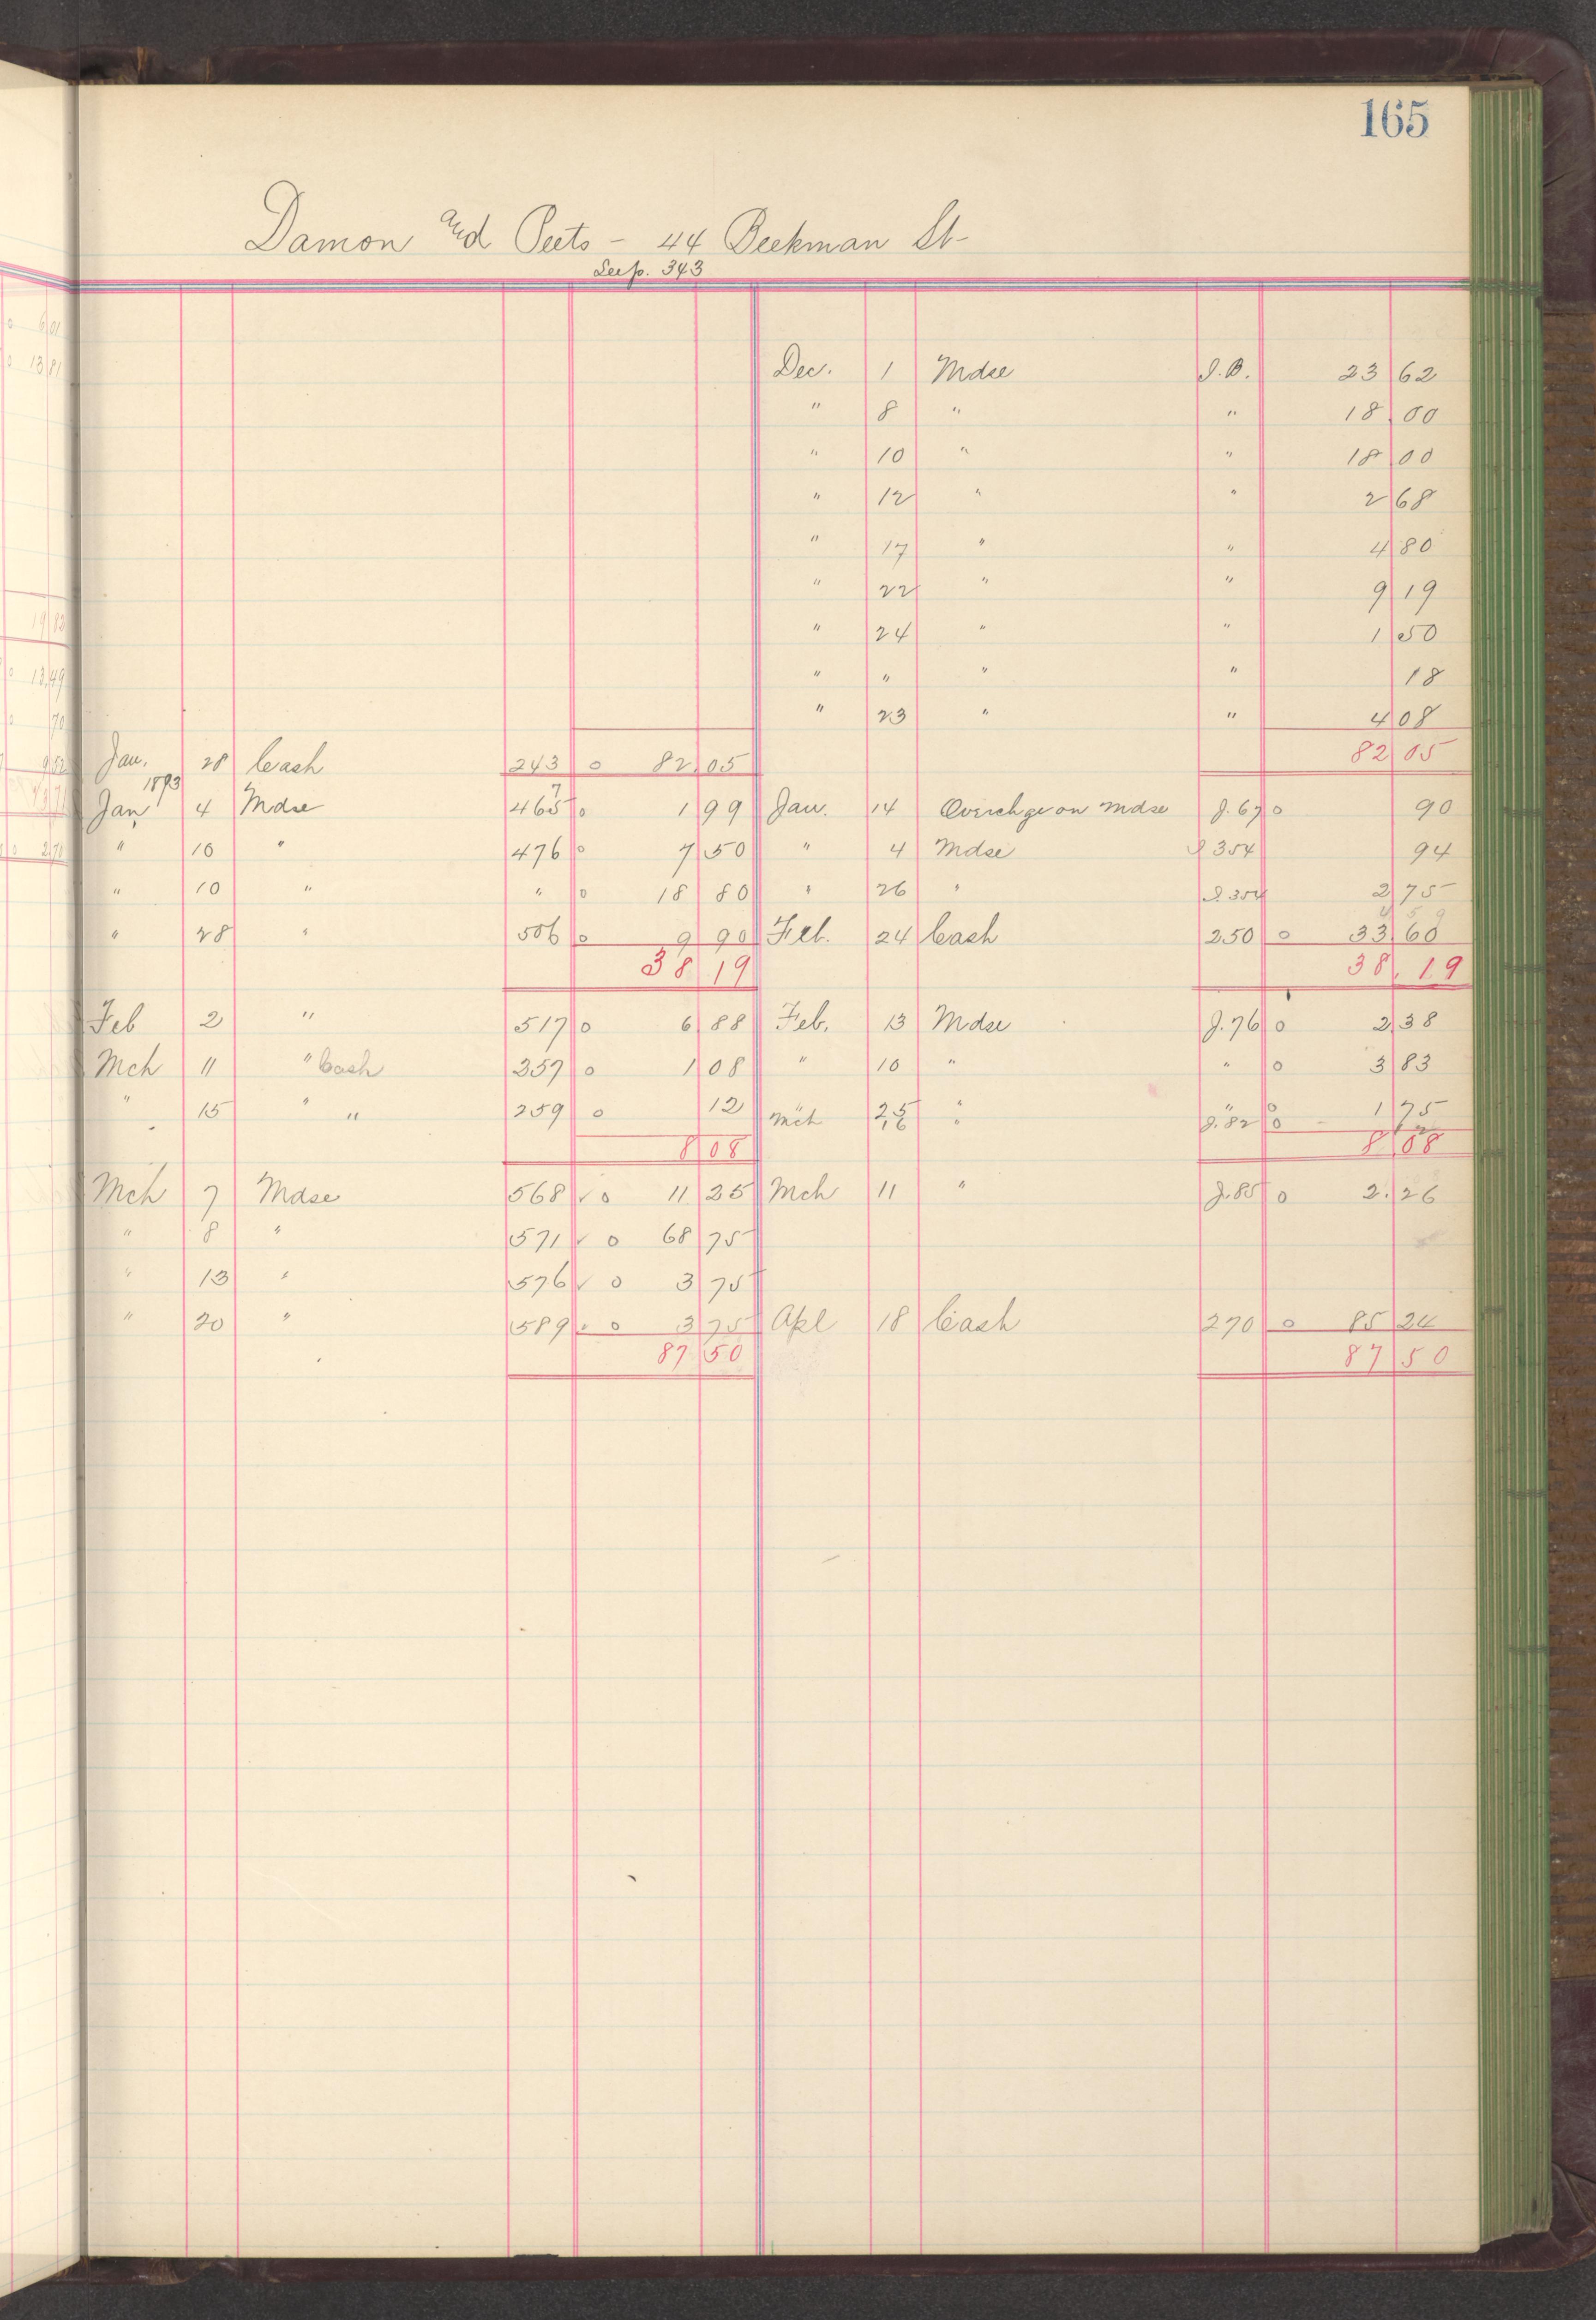 165
Damon and Peets - 44 Beekman St-
See p. 343
Dec. 1 Mdse I.B. 23 62
" 8 " " 18 00
" 10 " " 18 00
" 12 " " 2 68
" 17 " " 4 80
" 22 " " 9 19
" 24 " " 1 50
" " " " 18
" 23 " " 4 08
Jan. 28 Cash 243 o 82 05 82 05
1893
Jan 4 Mdse 465 o 1 99 Jan. 14 Overchge on Mdse J. 67 o 90
" 10 " 476 o 7 50 " 4 Mdse I 354 94
" 10 " " o 18 80 " 26 " I. 354 2 75
" 28 " 506 o 9 90 Feb. 24 Cash 250 o 33 60
38 19 38 19
Feb 2 " 517 o 6 88 Feb. 13 Mdse J. 76 o 2 38
Mch 11 " Cash 257 o 1 08 " 10 " " o 3 83
" 15 " " 259 o 12 " 25 " " o 1 75
Mch 16 " J. 82 o 12
8 08 8 08
Mch 7 Mdse 568 ✓ o 11 25 Mch 11 " J. 85 o 2 26
" 8 " 571 ✓ o 68 75
" 13 " 576 ✓ o 3 75
" 20 " 589 ✓ o 3 75 Apl 18 Cash 270 o 85 24
87 50 87 50